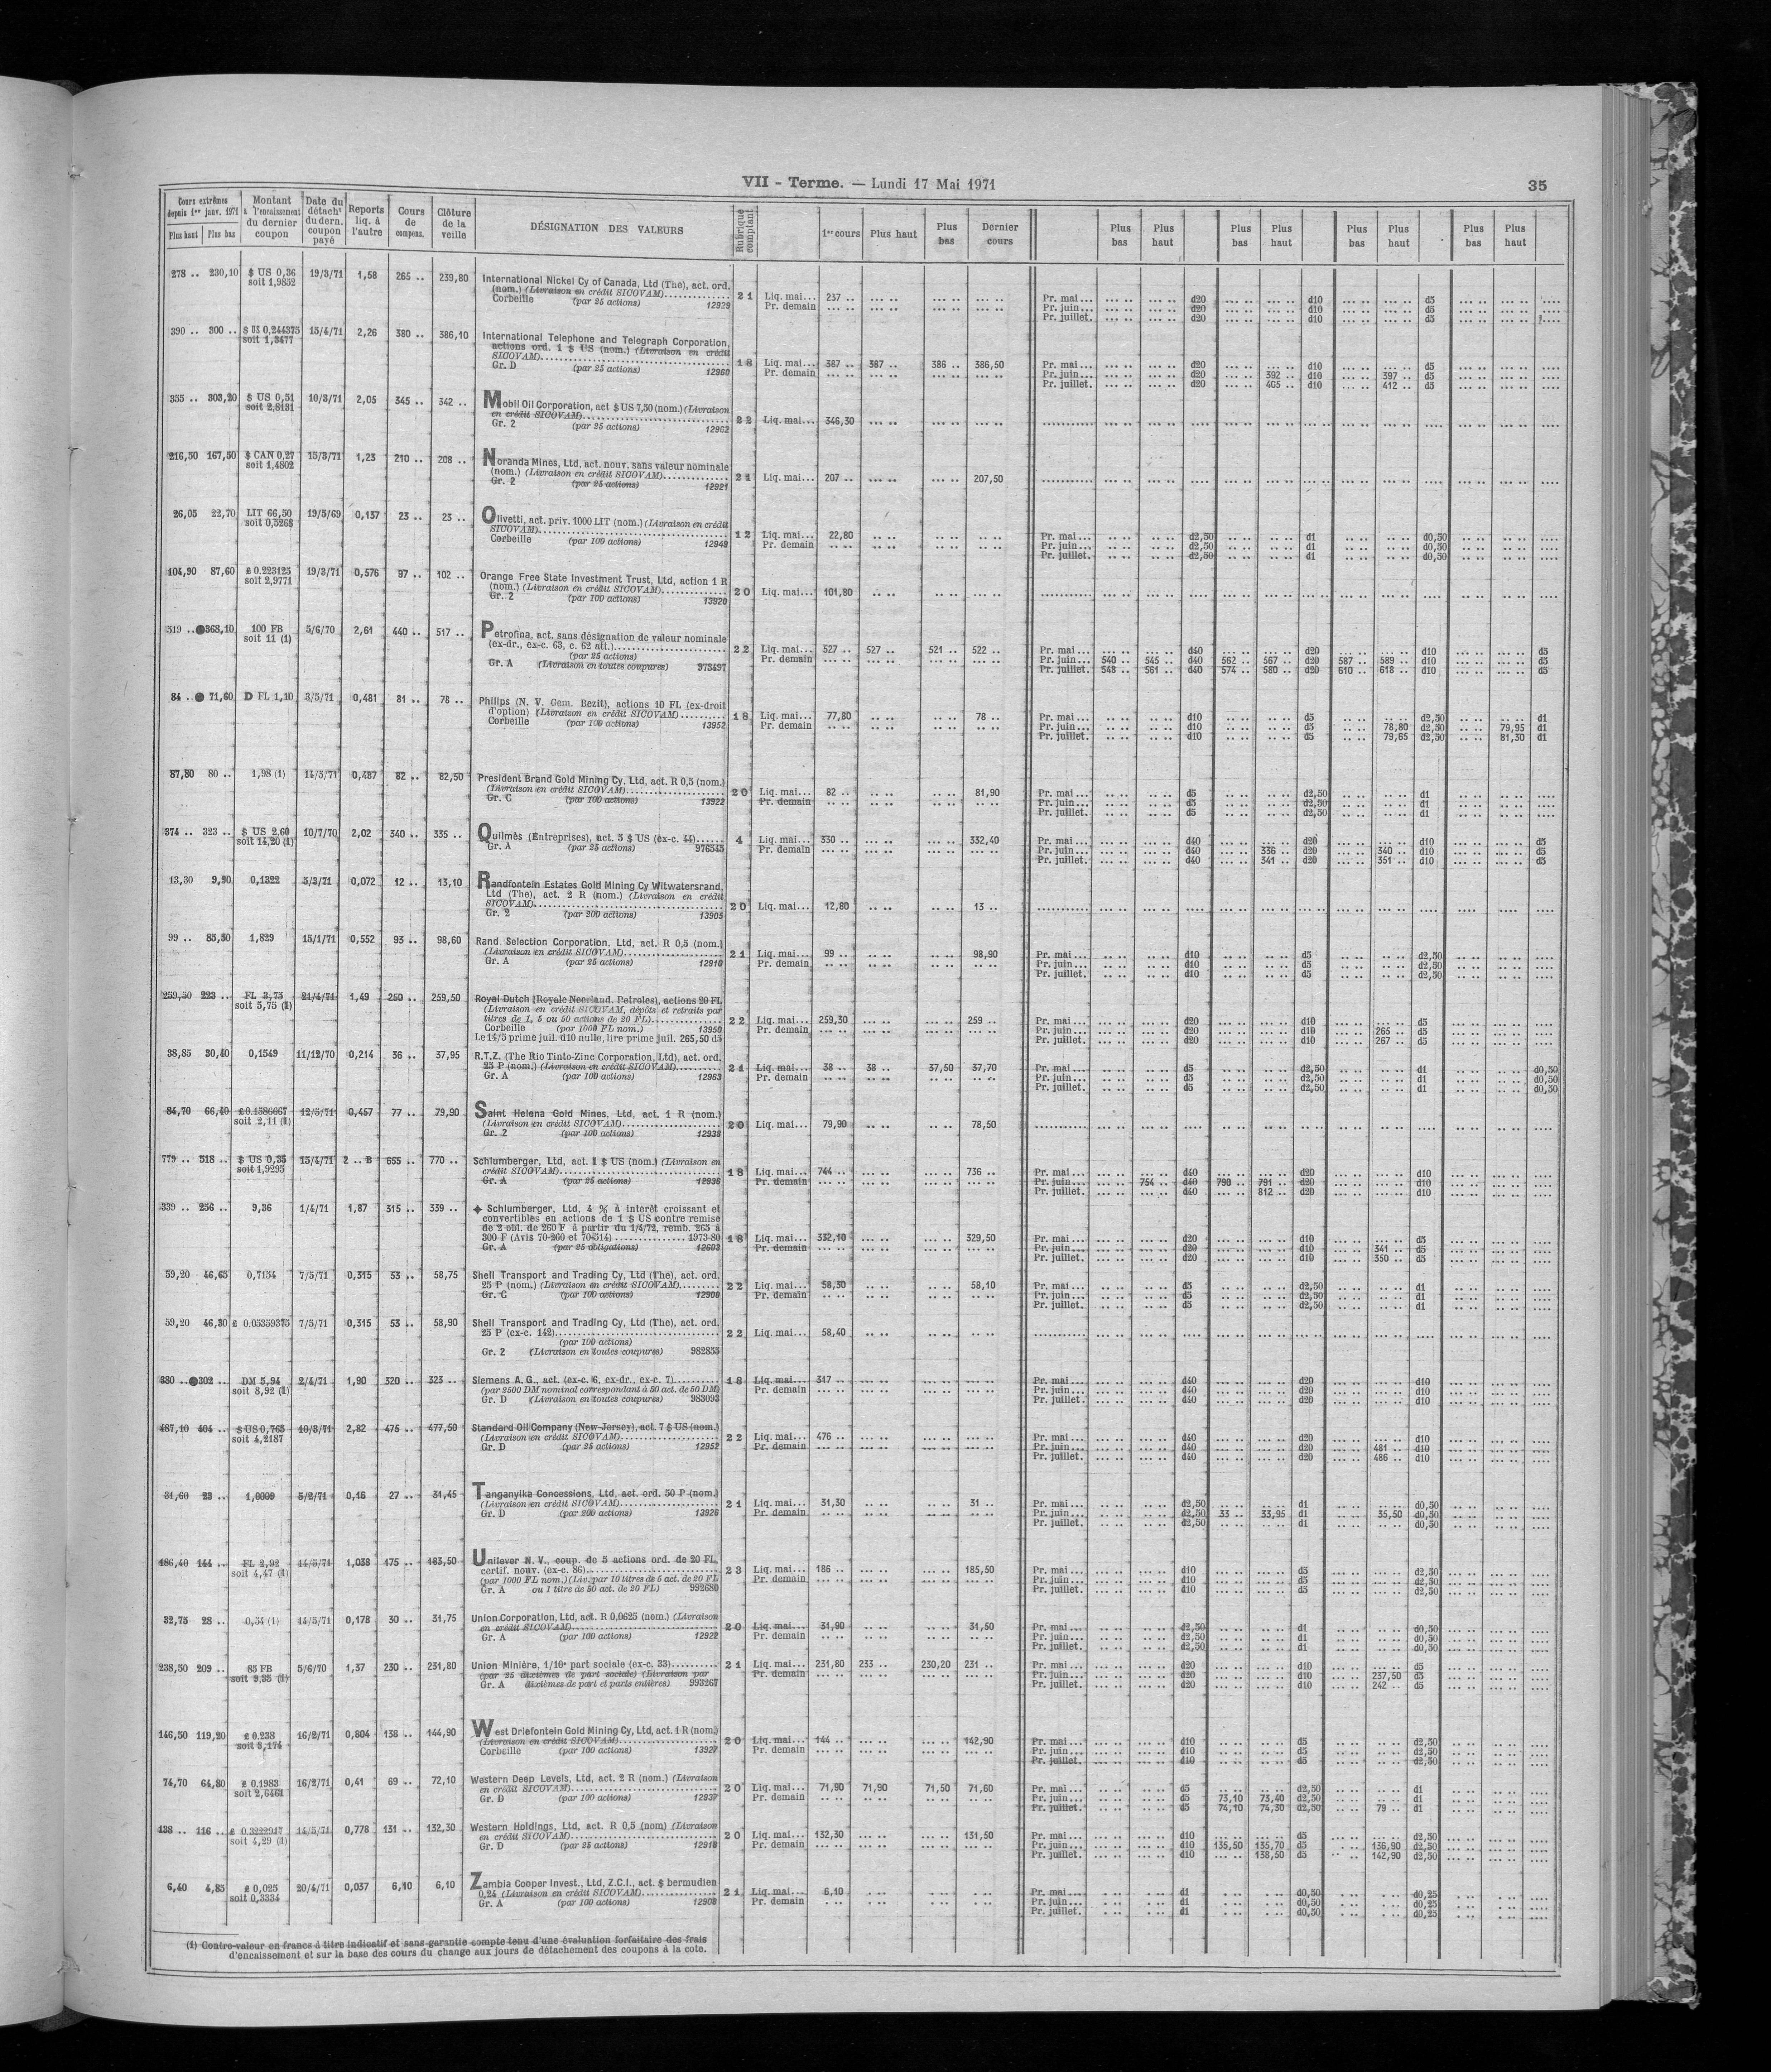 VII - Terme. — Lundi 17 Mai 1971 35
Cours extrêmes depuis 1er janv. 1971 Plus haut Plus bas Montant à l'encaissement du dernier coupon Date du détacht du dern. coupon payé Reports liq. à l'autre Cours de compens. Clôture de la veille DÉSIGNATION DES VALEURS Rubrique comptant 1er cours Plus haut Plus bas Dernier cours Plus bas Plus haut Plus bas Plus haut Plus bas Plus haut Plus bas Plus haut
278 .. 230,10 $ US 0,36 19/3/71 1,58 265 .. 239,80 International Nickel Cy of Canada, Ltd (The), act. ord.
soit 1,9852 (nom.) (Livraison en crédit SICOVAM) 21 Liq. mai... 237 .. Pr. mai ... d20 d10 d5
Corbeille (par 25 actions) 12929 Pr. demain Pr. juin... d20 d10 d5
Pr. juillet. d20 d10 d5
390 .. 300 .. $ US 0,244375 15/4/71 2,26 380 .. 386,10 International Telephone and Telegraph Corporation,
soit 1,3477 actions ord. 1 $ US (nom.) (Livraison en crédit
SICOVAM) 18 Liq. mai... 387 .. 387 .. 386 .. 386,50 Pr. mai ... d20 d10 d5
Gr. D (par 25 actions) 12960 Pr. demain Pr. juin... d20 392 .. d10 397 .. d5
Pr. juillet. d20 405 .. d10 412 .. d5
355 .. 303,20 $ US 0,51 10/3/71 2,05 345 .. 342 .. Mobil Oil Corporation, act $ US 7,50 (nom.) (Livraison
soit 2,8131 en crédit SICOVAM) 22 Liq. mai... 346,30
Gr. 2 (par 25 actions) 12962
216,50 167,50 $ CAN 0,27 15/3/71 1,23 210 .. 208 .. Noranda Mines, Ltd, act. nouv. sans valeur nominale
soit 1,4802 (nom.) (Livraison en crédit SICOVAM) 21 Liq. mai... 207 .. 207,50
Gr. 2 (par 25 actions) 12921
26,05 22,70 LIT 66,50 19/5/69 0,137 23 .. 23 .. Olivetti, act. priv. 1000 LIT (nom.) (Livraison en crédit
soit 0,5268 SICOVAM) 12 Liq. mai... 22,80 Pr. mai ... d2,50 d1 d0,50
Corbeille (par 100 actions) 12949 Pr. demain Pr. juin... d2,50 d1 d0,50
Pr. juillet. d2,50 d1 d0,50
104,90 87,60 £ 0.223125 19/3/71 0,576 97 .. 102 .. Orange Free State Investment Trust, Ltd, action 1 R
soit 2,9771 (nom.) (Livraison en crédit SICOVAM) 20 Liq. mai... 101,80
Gr. 2 (par 100 actions) 13920
519 .. ●368,10 100 FB 5/6/70 2,61 440 .. 517 .. Petrofina, act. sans désignation de valeur nominale
soit 11 (1) (ex-dr., ex-c. 63, c. 62 att.) 22 Liq. mai... 527 .. 527 .. 521 .. 522 .. Pr. mai ... d40 d20 d10 d5
(par 25 actions) Pr. demain Pr. juin... 540 .. 545 .. d40 562 .. 567 .. d20 587 .. 589 .. d10 d5
Gr. A (Livraison en toutes coupures) 973497 Pr. juillet. 548 .. 561 .. d40 574 .. 580 .. d20 610 .. 618 .. d10 d5
84 .. ● 71,60 D FL 1,10 3/5/71 0,481 81 .. 78 .. Philips (N. V. Gem. Bezit), actions 10 FL (ex-droit
d'option) (Livraison en crédit SICOVAM) 18 Liq. mai... 77,80 78 .. Pr. mai ... d10 d5 d2,50 d1
Corbeille (par 100 actions) 13952 Pr. demain Pr. juin... d10 d5 78,80 d2,50 79,95 d1
Pr. juillet. d10 d5 79,65 d2,50 81,30 d1
87,80 80 .. 1,98 (1) 14/5/71 0,487 82 .. 82,50 President Brand Gold Mining Cy, Ltd, act. R 0,5 (nom.)
(Livraison en crédit SICOVAM) 20 Liq. mai... 82 .. 81,90 Pr. mai ... d5 d2,50 d1
Gr. C (par 100 actions) 13922 Pr. demain Pr. juin... d5 d2,50 d1
Pr. juillet. d5 d2,50 d1
374 .. 323 .. $ US 2,60 10/7/70 2,02 340 .. 335 .. Quilmès (Entreprises), act. 5 $ US (ex-c. 44) 4 Liq. mai... 330 .. 332,40 Pr. mai ... d40 d20 d10 d5
soit 14,20 (1) Gr. A (par 25 actions) 976545 Pr. demain Pr. juin... d40 336 .. d20 340 .. d10 d5
Pr. juillet. d40 341 .. d20 351 .. d10 d5
13,30 9,90 0,1322 5/3/71 0,072 12 .. 13,10 Randfontein Estates Gold Mining Cy Witwatersrand,
Ltd (The), act. 2 R (nom.) (Livraison en crédit
SICOVAM) 20 Liq. mai... 12,80 13 ..
Gr. 2 (par 200 actions) 13905
99 .. 85,50 1,829 15/1/71 0,552 93 .. 98,60 Rand Selection Corporation, Ltd, act. R 0,5 (nom.)
(Livraison en crédit SICOVAM) 21 Liq. mai... 99 .. 98,90 Pr. mai ... d10 d5 d2,50
Gr. A (par 25 actions) 12910 Pr. demain Pr. juin... d10 d5 d2,50
Pr. juillet. d10 d5 d2,50
259,50 223 .. FL 3,75 21/4/71 1,49 250 .. 259,50 Royal Dutch (Royale Neerland. Petroles), actions 20 FL
soit 5,75 (1) (Livraison en crédit SICOVAM, dépôts et retraits par
titres de 1, 5 ou 50 actions de 20 FL) 22 Liq. mai... 259,30 259 .. Pr. mai ... d20 d10 d5
Corbeille (par 1000 FL nom.) 13950 Pr. demain Pr. juin... d20 d10 265 .. d5
Le 14/5 prime juil. d10 nulle, lire prime juil. 265,50 d5 Pr. juillet. d20 d10 267 .. d5
38,85 30,40 0,1549 11/12/70 0,214 36 .. 37,95 R.T.Z. (The Rio Tinto-Zinc Corporation, Ltd), act. ord.
25 P (nom.) (Livraison en crédit SICOVAM) 21 Liq. mai... 38 .. 38 .. 37,50 37,70 Pr. mai ... d5 d2,50 d1 d0,50
Gr. A (par 100 actions) 12963 Pr. demain Pr. juin... d5 d2,50 d1 d0,50
Pr. juillet. d5 d2,50 d1 d0,50
84,70 66,40 £ 0.1586667 12/5/71 0,457 77 .. 79,90 Saint Helena Gold Mines, Ltd, act. 1 R (nom.)
soit 2,11 (1) (Livraison en crédit SICOVAM) 20 Liq. mai... 79,90 78,50
Gr. 2 (par 100 actions) 12938
779 .. 518 .. $ US 0,35 15/4/71 2 .. B 655 .. 770 .. Schlumberger, Ltd, act. 1 $ US (nom.) (Livraison en
soit 1,9295 crédit SICOVAM) 18 Liq. mai... 744 .. 736 .. Pr. mai ... d40 d20 d10
Gr. A (par 25 actions) 12936 Pr. demain Pr. juin... 754 .. d40 790 .. 791 .. d20 d10
Pr. juillet. d40 812 .. d20 d10
339 .. 256 .. 9,36 1/4/71 1,87 315 .. 339 .. ✦ Schlumberger, Ltd, 4 % à interêt croissant et
convertibles en actions de 1 $ US contre remise
de 2 obl. de 260 F à partir du 1/4/72, remb. 265 à
300 F (Avis 70-260 et 70-514) 1973-80 18 Liq. mai... 332,10 329,50 Pr. mai ... d20 d10 d5
Gr. A (par 25 obligations) 12603 Pr. demain Pr. juin... d20 d10 341 .. d5
Pr. juillet. d20 d10 350 .. d5
59,20 46,65 0,7154 7/5/71 0,315 53 .. 58,75 Shell Transport and Trading Cy, Ltd (The), act. ord.
25 P (nom.) (Livraison en crédit SICOVAM) 22 Liq. mai... 58,30 58,10 Pr. mai ... d5 d2,50 d1
Gr. C (par 100 actions) 12909 Pr. demain Pr. juin... d5 d2,50 d1
Pr. juillet. d5 d2,50 d1
59,20 46,30 £ 0.05359375 7/5/71 0,315 53 .. 58,90 Shell Transport and Trading Cy, Ltd (The), act. ord.
25 P (ex-c. 142) 22 Liq. mai... 58,40
(par 100 actions)
Gr. 2 (Livraison en toutes coupures) 982855
380 .. ●302 .. DM 5,94 2/4/71 1,90 320 .. 323 .. Siemens A. G., act. (ex-c. 6, ex-dr., ex-c. 7) 18 Liq. mai... 317 .. Pr. mai ... d40 d20 d10
soit 8,92 (1) (par 2500 DM nominal correspondant à 50 act. de 50 DM) Pr. demain Pr. juin... d40 d20 d10
Gr. D (Livraison en toutes coupures) 983093 Pr. juillet. d40 d20 d10
487,10 404 .. $ US 0,765 10/3/71 2,82 475 .. 477,50 Standard Oil Company (New-Jersey), act. 7 $ US (nom.)
soit 4,2187 (Livraison en crédit SICOVAM) 22 Liq. mai... 476 .. Pr. mai ... d40 d20 d10
Gr. D (par 25 actions) 12952 Pr. demain Pr. juin... d40 d20 481 .. d10
Pr. juillet. d40 d20 486 .. d10
31,60 23 .. 1,0009 5/2/71 0,16 27 .. 31,45 Tanganyika Concessions, Ltd, act. ord. 50 P (nom.)
(Livraison en crédit SICOVAM) 21 Liq. mai... 31,30 31 .. Pr. mai ... d2,50 d1 d0,50
Gr. D (par 200 actions) 13926 Pr. demain Pr. juin... d2,50 33 .. 33,95 d1 35,50 d0,50
Pr. juillet. d2,50 d1 d0,50
186,40 144 .. FL 2,92 14/5/71 1,038 175 .. 183,50 Unilever N. V., coup. de 5 actions ord. de 20 FL,
soit 4,47 (1) certif. nouv. (ex-c. 86) 23 Liq. mai... 186 .. 185,50 Pr. mai ... d10 d5 d2,50
(par 1000 FL nom.) (Liv. par 10 titres de 5 act. de 20 FL Pr. demain Pr. juin... d10 d5 d2,50
Gr. A ou 1 titre de 50 act. de 20 FL) 992680 Pr. juillet. d10 d5 d2,50
32,75 28 .. 0,54 (1) 14/5/71 0,178 30 .. 31,75 Union Corporation, Ltd, act. R 0,0625 (nom.) (Livraison
en crédit SICOVAM) 20 Liq. mai... 31,90 31,50 Pr. mai ... d2,50 d1 d0,50
Gr. A (par 100 actions) 12922 Pr. demain Pr. juin... d2,50 d1 d0,50
Pr. juillet. d2,50 d1 d0,50
238,50 209 .. 85 FB 5/6/70 1,37 230 .. 231,80 Union Minière, 1/10e part sociale (ex-c. 33) 21 Liq. mai... 231,80 233 .. 230,20 231 .. Pr. mai ... d20 d10 d5
soit 9,35 (1) (par 25 dixièmes de part sociale) (Livraison par Pr. demain Pr. juin... d20 d10 237,50 d5
Gr. A dixièmes de part et parts entières) 993267 Pr. juillet. d20 d10 242 .. d5
146,50 119,20 £ 0.238 16/2/71 0,804 138 .. 144,90 West Driefontein Gold Mining Cy, Ltd, act. 1 R (nom.)
soit 3,174 (Livraison en crédit SICOVAM) 20 Liq. mai... 144 .. 142,90 Pr. mai ... d10 d5 d2,50
Corbeille (par 100 actions) 13927 Pr. demain Pr. juin... d10 d5 d2,50
Pr. juillet. d10 d5 d2,50
74,70 64,80 £ 0.1983 16/2/71 0,41 69 .. 72,10 Western Deep Levels, Ltd, act. 2 R (nom.) (Livraison
soit 2,6461 en crédit SICOVAM) 20 Liq. mai... 71,90 71,90 71,50 71,60 Pr. mai ... d5 d2,50 d1
Gr. D (par 100 actions) 12937 Pr. demain Pr. juin... d5 73,10 73,40 d2,50 d1
Pr. juillet. d5 74,10 74,30 d2,50 79 .. d1
138 .. 116 .. £ 0.3222917 14/5/71 0,778 131 .. 132,30 Western Holdings, Ltd, act. R 0,5 (nom) (Livraison
soit 4,29 (1) en crédit SICOVAM) 20 Liq. mai... 132,30 131,50 Pr. mai ... d10 d5 d2,50
Gr. D (par 25 actions) 12918 Pr. demain Pr. juin... d10 135,50 135,70 d5 136,90 d2,50
Pr. juillet. d10 138,50 d5 142,90 d2,50
6,40 4,85 £ 0,025 20/4/71 0,037 6,10 6,10 Zambia Cooper Invest., Ltd, Z.C.I., act. $ bermudien
soit 0,3334 0,24 (Livraison en crédit SICOVAM) 21 Liq. mai... 6,10 Pr. mai ... d1 d0,50 d0,25
Gr. A (par 100 actions) 12908 Pr. demain Pr. juin... d1 d0,50 d0,25
Pr. juillet. d1 d0,50 d0,25
(1) Contre-valeur en francs à titre indicatif et sans garantie compte tenu d'une évaluation forfaitaire des frais
d'encaissement et sur la base des cours du change aux jours de détachement des coupons à la cote.